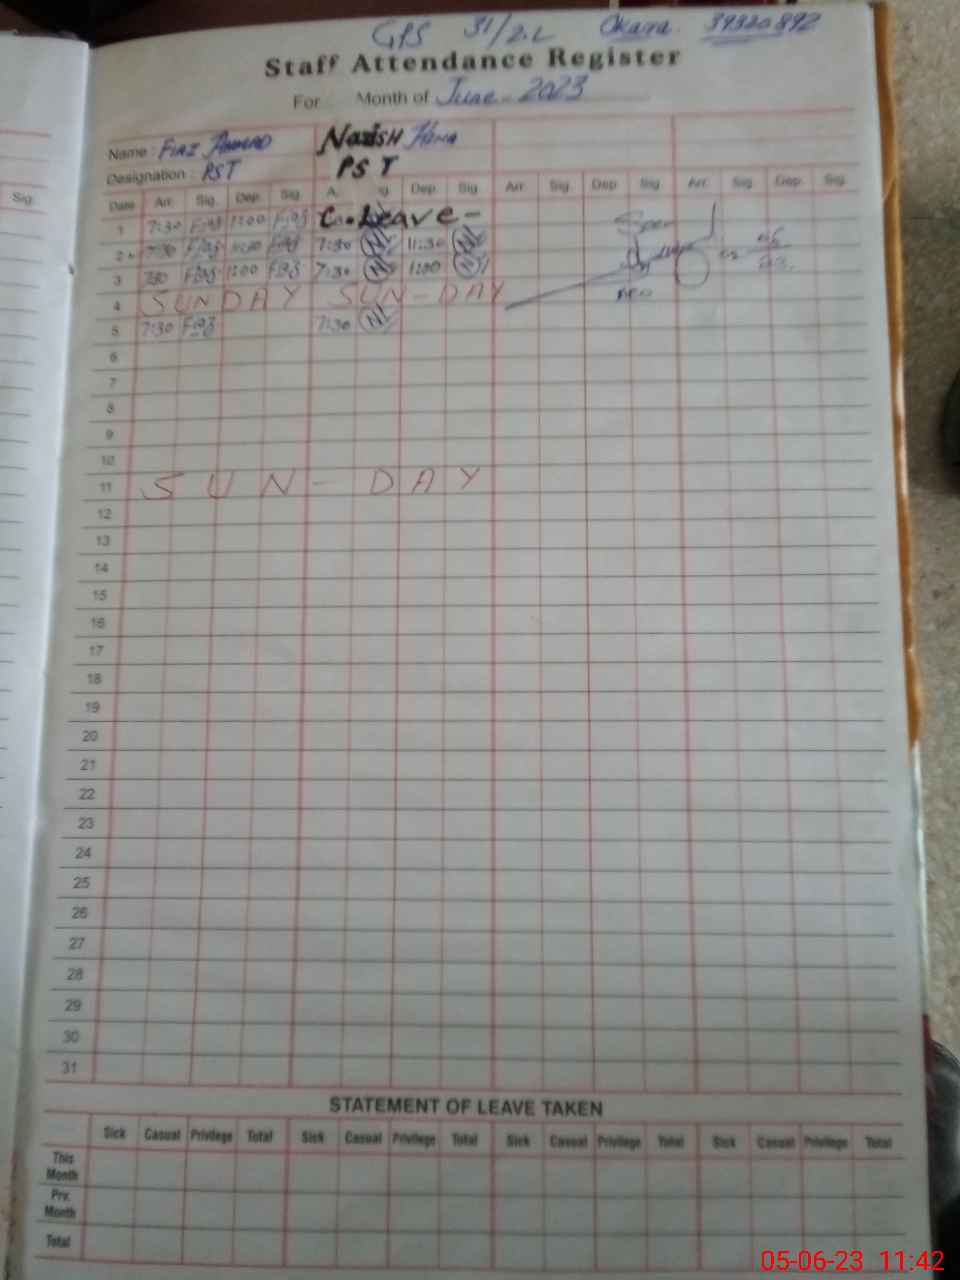 GPS 31/2.L Okara 39320892
Staff Attendance Register
For Month of June - 2023
Name : FIAZ AHMAD NAZISH Hina
Designation : PST PST
Date Arr. Sig. Dep. Sig. A. g. Dep. Sig Arr. Sig. Dep. Sig Arr. Sig. Dep. Sig.
1 7:30 Fiaz 11:00 Fiaz C. Leave -
2 7:30 Fiaz 11:30 Fiaz 7:30 11:30
3 7:30 Fiaz 11:00 Fiaz 7:30 11:00
4 SUNDAY SUN-DAY
5 7:30 Fiaz 7:30
6
7
8
9
10
11 SUN-DAY
12
13
14
15
16
17
18
19
20
21
22
23
24
25
26
27
28
29
30
31
STATEMENT OF LEAVE TAKEN
Sick Casual Privilege Total Sick Casual Privilege Total Sick Casual Privilege Total Sick Casual Privilege Total
This Month
Prv. Month
Total
Sig.
05-06-23 11:42